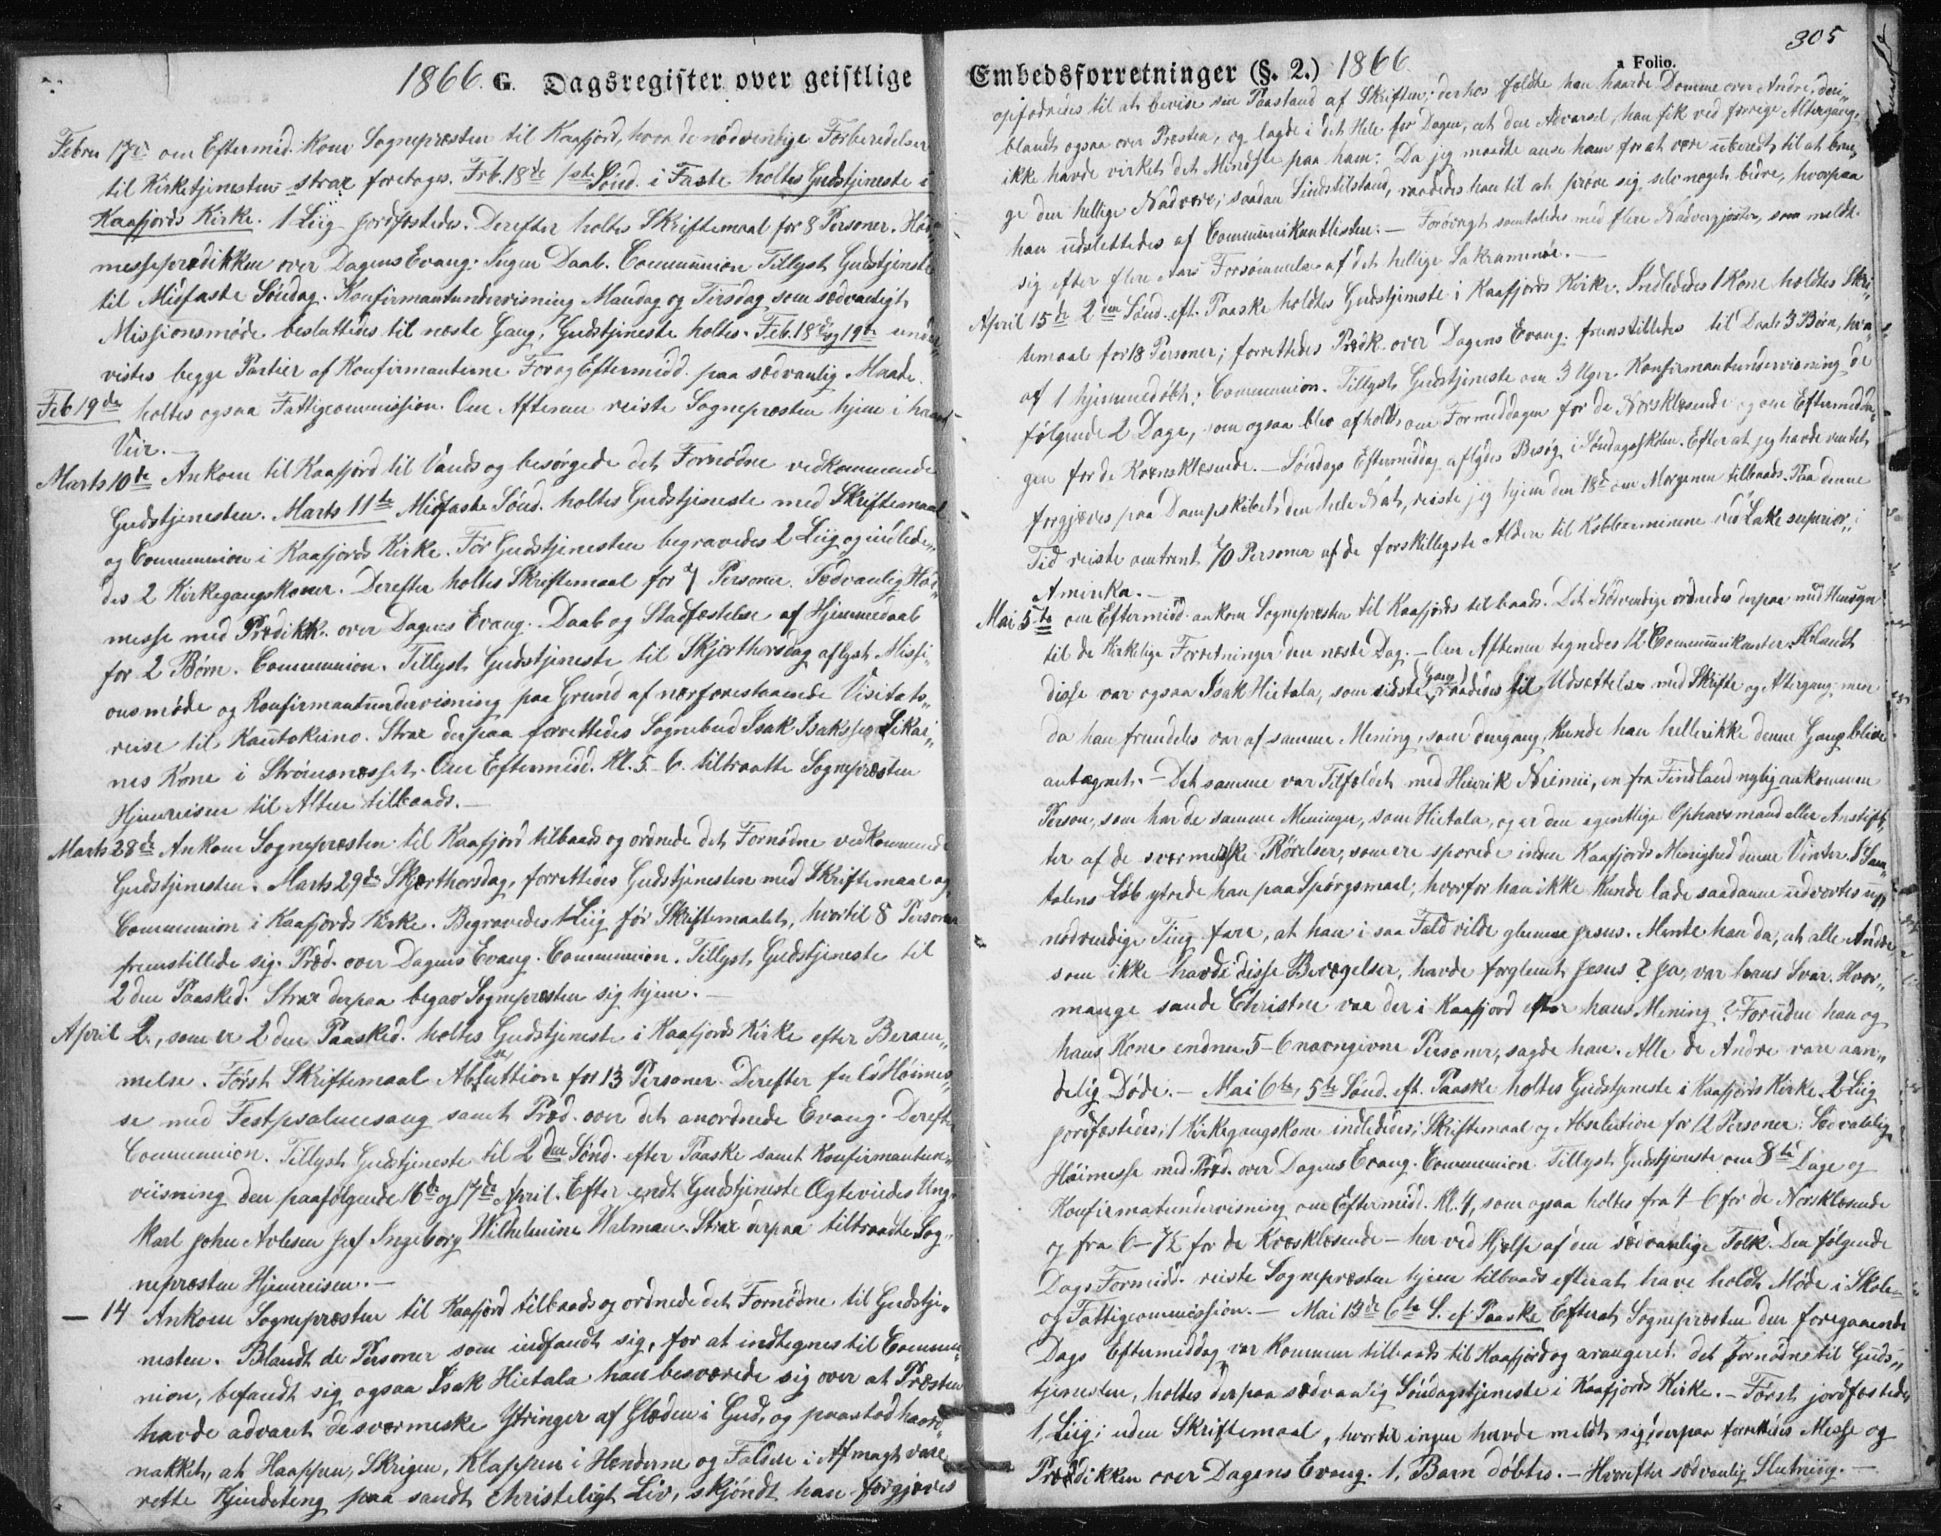 1866. G. Dagsregister over geistlige
Febru 17de om Eftermid. kom Sognepræsten til Kaafjord, hvor de nødvendige Forberedelser
til Kirketjenesten strax foretoges. Feb. 18de 1ste Sønd. i Faste holtes Gudstjeneste i
Kaafjords Kirke. 1 Liig jordfæstedes. Derefter holtes Skriftemaal for 8 Personer. Høi„
messeprædikken over Dagens Evang. Ingen Daab. Communion Tillyst Gudstjenste
til Midfaste Søndag. Konfirmantundervisning Mandag og Tirsdag som sædvanligt,
Missionsmøde besluttedes til næste Gang, Gudstjeneste holtes. Feb. 18de og 19de under„
vistes begge Partier af Konfirmanterne For og Eftermidd. paa sædvanlig Maade.
Feb 19de holtes ogsaa Fattigcommission. Om Aftenen reiste Sognepræsten hjem i haardt
Veir. —
Marts 10de Ankom til Kaafjord til Vands og besørgede det Fornødne vedkommende
Gudstjenesten. Marts 11te Midfaste Sønd. holtes Gudstjeneste med Skriftemaal
og Communion i Kaafjords Kirke. Før Gudstjenesten begravedes 2 Liig og indlede„
des 2 Kirkegangskoner. Derefter holtes Skriftemaal for 7 Personer. Sædvanlig Høi„
messe med Prædikk. over Dagens Evang. Daab og Stadfæstelse af Hjemmedaab
for 2 Børn. Communion. Tillyst Gudstjeneste til Skjærthorsdag aflyst Missi„
onsmøde og Konfirmantundervisning paa Grund af nærforestaaende Visitats„
reise til Kautokeino. Strax derpaa forrettedes Sognebud Isak Isaksen Sikai„
nes Kone i Strømsnæsset. Om Eftermidd. Kl. 5-6. tiltraatte Sognepræsten
Hjemreisen til Alten tilbaads. —
Marts 28de Ankom Sognepræsten til Kaafjord tilbaads og ordnede det Fornødne vedkommende
Gudstjenesten. Marts 29de Skjærthorsdag, forrettedes Gudstjenesten med Skriftemaal og
Communion i Kaafjords Kirke. Begravedes 1 Liig før Skriftemaalet, hvortil 8 Personer
fremstillede sig. Præd. over Dagens Evang. Communion. Tillyst Gudstjeneste til
2den Paasked. Strax derpaa begav Sognepræsten sig hjem. —
April 2., som er 2den Paasked. holtes Gudstjeneste i Kaafjords Kirke efter Beram„
melse. Først Skriftemaal Absoluttion for 13 Personer. Derefter fuld Høimes„
se med Festpsalmesang samt Præd. over det anordnede Evang. Derefter
Communion. Tillyst Gudstjeneste til 2den Sønd. efter Paaske samt Konfirmantun„
viisning den paafølgende 16de og 17de April. Efter endt Gudstjeneste Ægteviedes Ung„
karl John Avlesen Jes Ingeborg Wilhelmine Walman. Strax derpaa tiltraadte Sog„
nepræsten Hjemreisen. —
— 14 Ankom Sognepræsten til Kaafjord tilbaads og ordnede det Fornødne til Gudstje„
nesten. Blandt de Personer som indfandt sig, for at indtegnes til Commu„
nion, befandt sig ogsaa Isak Hietala han besværede sig over at Præsten
havde advaret de sværmeske Ytringer af Glæden i Gud, og paastod haard„
nakket, at Haappen, Skrigen, Klappen i Hænderne og Falden i Afmagt vare
rette Kjendeteng paa sandt christeligt Liv, skjøndt han forgjæves
Embedsforretninger (§. 2.) 1866.
a Folio.
305
opfodredes til at bevise sin Paastand af Skriften; derhos fældte han haarde Domme over Andre, deri„
blandt ogsaa over Præsten, og lagde i det Hele for Dagen, at den Advarsel, han fik ved forrige Altergang,
ikke havde virket det Mindste paa ham: Da jeg maatte anse ham for at være uberedt til at bru„
ge den hellige Nadvere, saadan Sindstilstand, raadedes han til at prøve sig selv noget bedre, hvorpaa
han udslettedes af Communikantlisten: — Forøvrigt samtaledes med flere Nadvergjæster, som meldte
sig efter flere Aars Forsømmelse af det hellige Sakramente. —
April 15de 2den Sønd. eft. Paaske holdtes Gudstjeneste i Kaafjords Kirke. Indlededes 1 Kone holdtes Skri„
temaal for 18 Personer; forrettedes Prædk over Dagens Evang: fremstilledes til Daab 3 Børn, hvor„
af 1 hjemmedøbt; Communion. Tillyst Gudstjeneste om 3 Uger. Konfirmantundervisning de
følgende 2 Dage, som ogsaa blev afholdt om Formiddagen for de Norsklæsende og om Eftermidda„
gen for de Kvensklæsende. — Søndags Eftermiddag aflagdes Besøg i Søndagsskolen. Efterat jeg havde ventet
forgjæves paa Dampskibet den hele Nat, reiste jeg hjem den 18de om Morgenen tilbaads. Paa denne
Tid reiste omtrent 70 Personer af de forskilligste Aldere til Kobberminene ved Lake superior, i
Amerika. —
Mai 5te om Eftermidd. ankom Sognepræsten til Kaafjords tilbaads. Det Nødvendige ordnedes derpaa med Hensyn
til de Kirkelige Forretninger den næste Dag. — Om Aftenen tegnedes 12 Communikanter. Iblandt
disse var ogsaa Isak Hietala, som sidste Gang raadedes til Udsættelse med Skrifte og Altergang, men
da han fremdeles var af samme Mening, som dengang, kunde han heller ikke denne Gang blive
antegnet. — Det samme var Tilfældet med Hinrik Niemi, en fra Finland nylig ankommen
Person, som har de samme Meninger, som Hietala, og er den egentlige Ophavsmand eller Anstift„
ter af de sværmeriske Rørelser, som ere sporede inden Kaafjords Menighed denne Vinter. I Sam„
talens Løb ytrede han paa Spørgsmaal, hvorfor han ikke kunde lade saadanne udvortes un„
nødvendige Ting fare, at han i saa Fald vilde glemme Jesus. Mente han da, at alle Andre
som ikke havde disse Bevægelser, havde forglemt Jesus? Ja, var hans Svar. Hvor„
mange sande Christne var der i Kaafjord efter hans Mening? Foruden han og
hans Kone endnu 5-6 navngivne Personer, sagde han. Alle de Andre vare aan„
delig Døde. — Mai 6te, 5te Sønd. eft. Paaske holtes Gudstjeneste i Kaafjords Kirke. 2 Liig
jordfæstedes; 1 Kirkegangskone indledes; Skriftemaal og Absolution for 12 Personer: Sædvanlig
Høimesse med Præd. over Dagens Evang. Communion Tillyst Gudstjeneste om 8te Dage og
Konfirmatundervisning om Eftermidd. Kl. 4, som ogsaa holtes fra 4-6 for de Norsklæsende
og fra 6-7½ for de Kvæsklæsende — her ved Hjelp af den sædvanlige Tolk. Den følgende
Dags Formidd. reiste Sognepræsten hjem tilbaads efterat have holdt Møde i Skole„
og Fattigcommission. — Mai 13de 6te S. ef. Paaske Efterat Sognepræsten den foregaaende
Dags Eftermiddag var kommen tilbaads til Kaafjord og arangeret det Fornødne til Guds„
tjenesten, holtes derpaa sædvanlig Søndagstjeneste i Kaafjords Kirke. — Først jordfæstedes
1, Liig; uden Skriftemaal, hvortil ingen havde meldt sig, derpaa forrettedes Messe og
Prædikken over Dagens Evang. 1, Barn døbtes. — Hvorefter sædvanlig Slutning. —